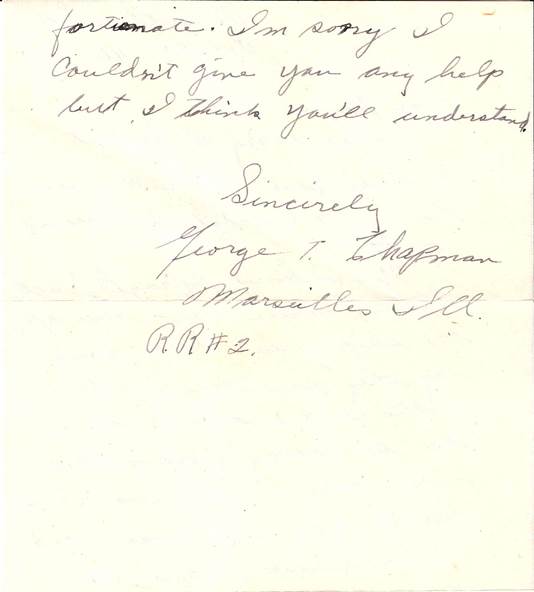 fortunate. I'm sorry I
Couldn't give you any help
but I think you'll understand.
Sincirely
George T. Chapman
Marseilles Ill.
R.R #2.